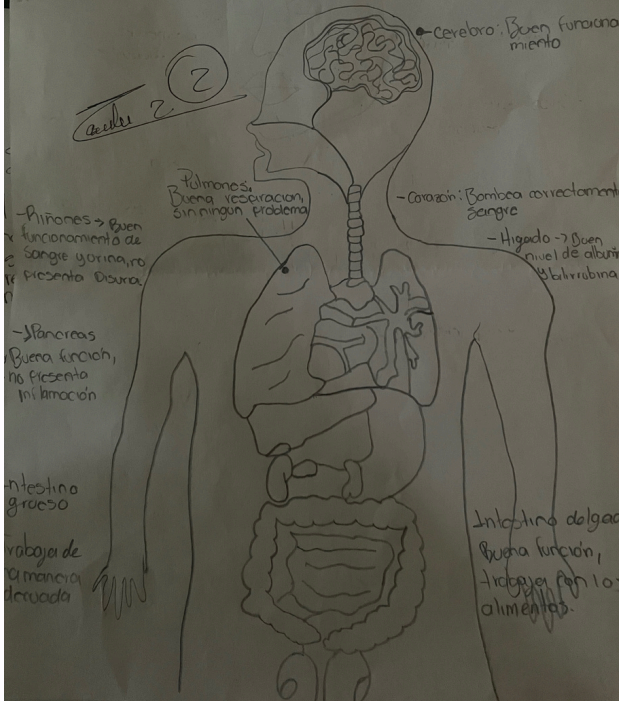 -Cerebro: Buen funciona
miento
2
2
Pulmones,
Buena respiracion,
sin ningun problema
-Corazón: Bombea correctament
sangre
-Higado -> Buen
nivel de albumi
y bilirrubina
-Riñones -> Buen
funcionamiento de
sangre y orina, no
presenta Disuria
->Pancreas
Buena funcion,
no presenta
Inflamación
ntestino
grueso
rabaja de
a manera
decuada
Intestino delgad
Buena función,
trabaja con los
alimentos.